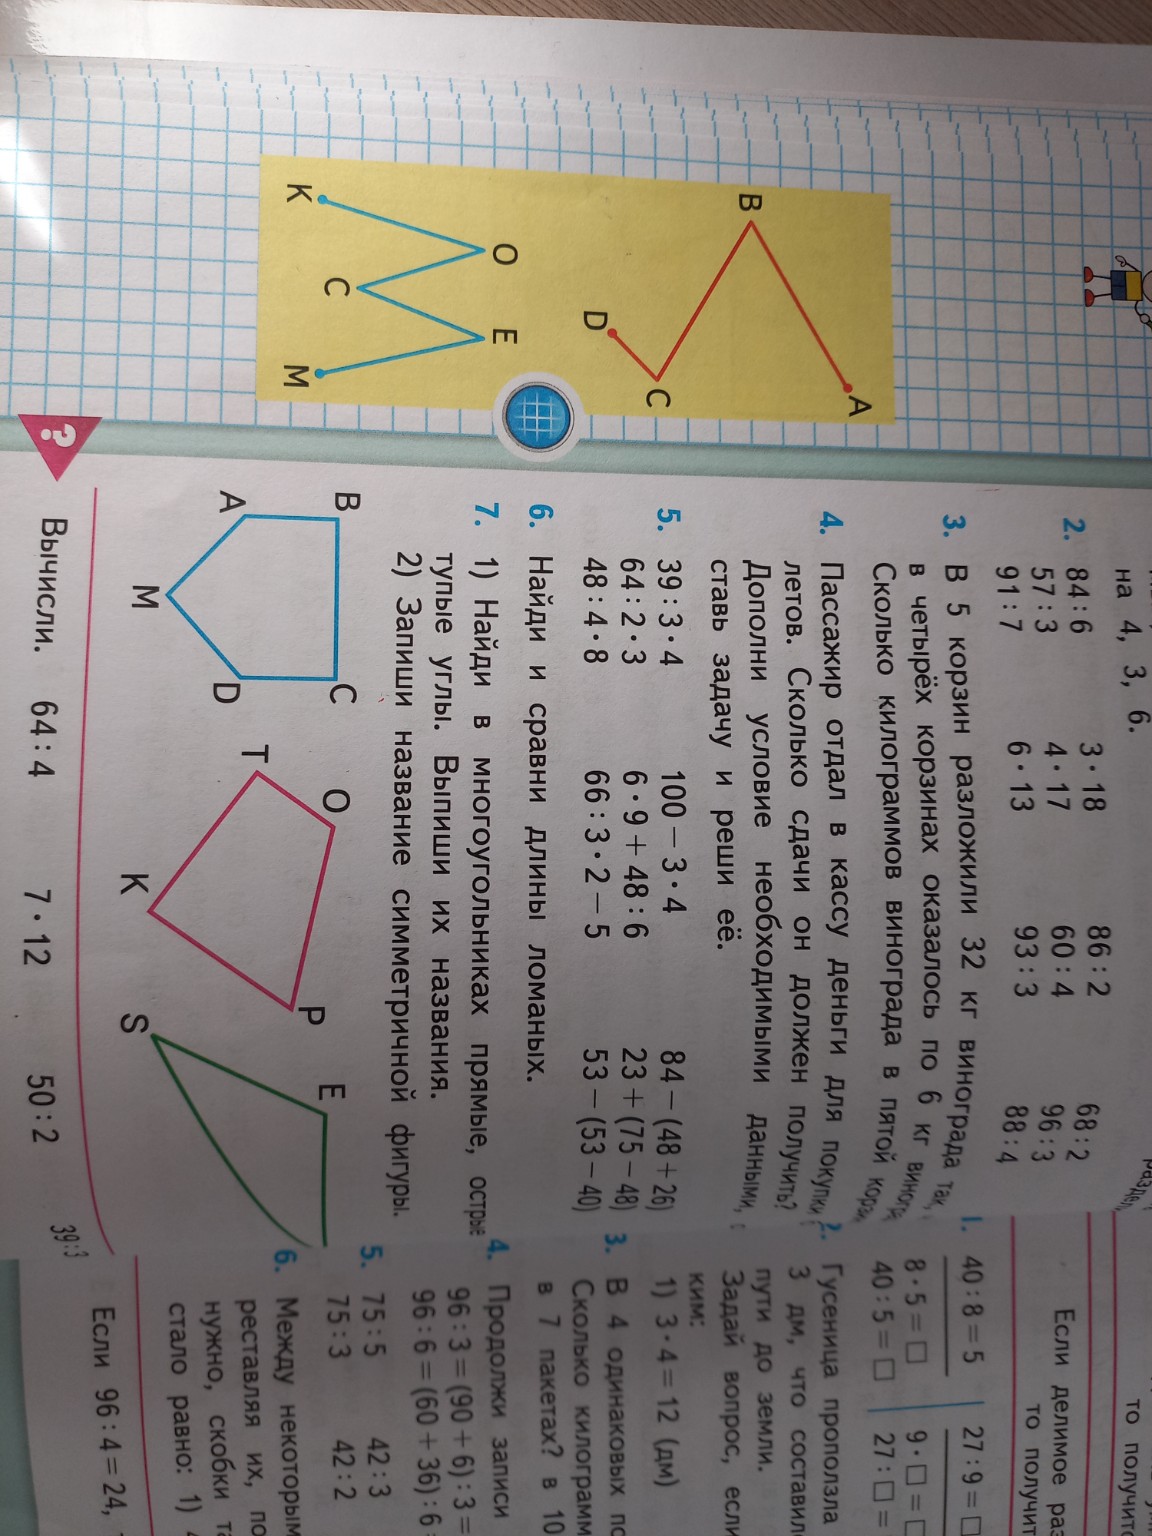 на 4, 3, 6.
2. 84 : 6 3 · 18 86 : 2 68 : 2
57 : 3 4 · 17 60 : 4 96 : 3
91 : 7 6 · 13 93 : 3 88 : 4
3. В 5 корзин разложили 32 кг винограда так,
в четырёх корзинах оказалось по 6 кг
Сколько килограммов винограда в пятой
4. Пассажир отдал в кассу деньги для покупки
летов. Сколько сдачи он должен получить?
Дополни условие необходимыми данными,
ставь задачу и реши её.
5. 39 : 3 · 4 100 − 3 · 4 84 − (48 + 26)
64 : 2 · 3 6 · 9 + 48 : 6 23 + (75 − 48)
48 : 4 · 8 66 : 3 · 2 − 5 53 − (53 − 40)
6. Найди и сравни длины ломаных.
7. 1) Найди в многоугольниках прямые, острые
тупые углы. Выпиши их названия.
2) Запиши название симметричной фигуры.
A
B
C
D
O
E
K
C
M
B
C
A
D
M
O
T
P
K
E
S
?
Вычисли. 64 : 4 7 · 12 50 : 2 39 : 3
то получит
Если делимое раз
то получит
1. 40 : 8 = 5 27 : 9 = □
8 · 5 = □ 9 · □ = □
40 : 5 = □ 27 : □ =
2. Гусеница проползла
3 дм, что составил
пути до земли.
Задай вопрос, если
ким:
1) 3 · 4 = 12 (дм)
3. В 4 одинаковых по
Сколько килограмм
в 7 пакетах? в 10
4. Продолжи записи
96 : 3 = (90 + 6) : 3 =
96 : 6 = (60 + 36) : 6
5. 75 : 5 42 : 3
75 : 3 42 : 2
6. Между некоторым
реставляя их, по
нужно, скобки та
стало равно: 1)
Если 96 : 4 = 24,